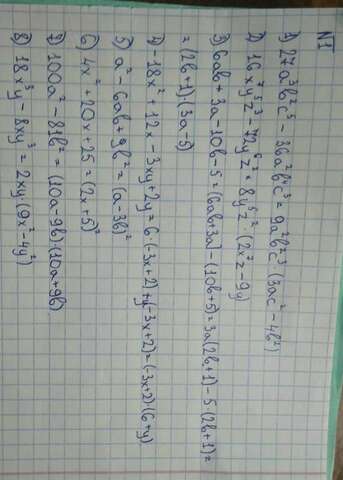 N1
1) 27a³b²c⁵ - 36a²b⁴c³ = 9a²b²c³ (3ac² - 4b²)
2) 16x⁷y⁵z³ - 72y⁶z² = 8y⁵z² · (2x⁷z - 9y)
3) 6ab + 3a - 10b - 5 = (6ab + 3a) - (10b + 5) = 3a(2b + 1) - 5 · (2b + 1) =
= (2b + 1) · (3a - 5)
4) -18x² + 12x - 3xy + 2y = 6 · (-3x + 2) + y(-3x + 2) = (-3x + 2) · (6 + y)
5) a² - 6ab + 9b² = (a - 3b)²
6) 4x² + 20x + 25 = (2x + 5)²
7) 100a² - 81b² = (10a - 9b) · (10a + 9b)
8) 18x³y - 8xy³ = 2xy · (9x² - 4y²)